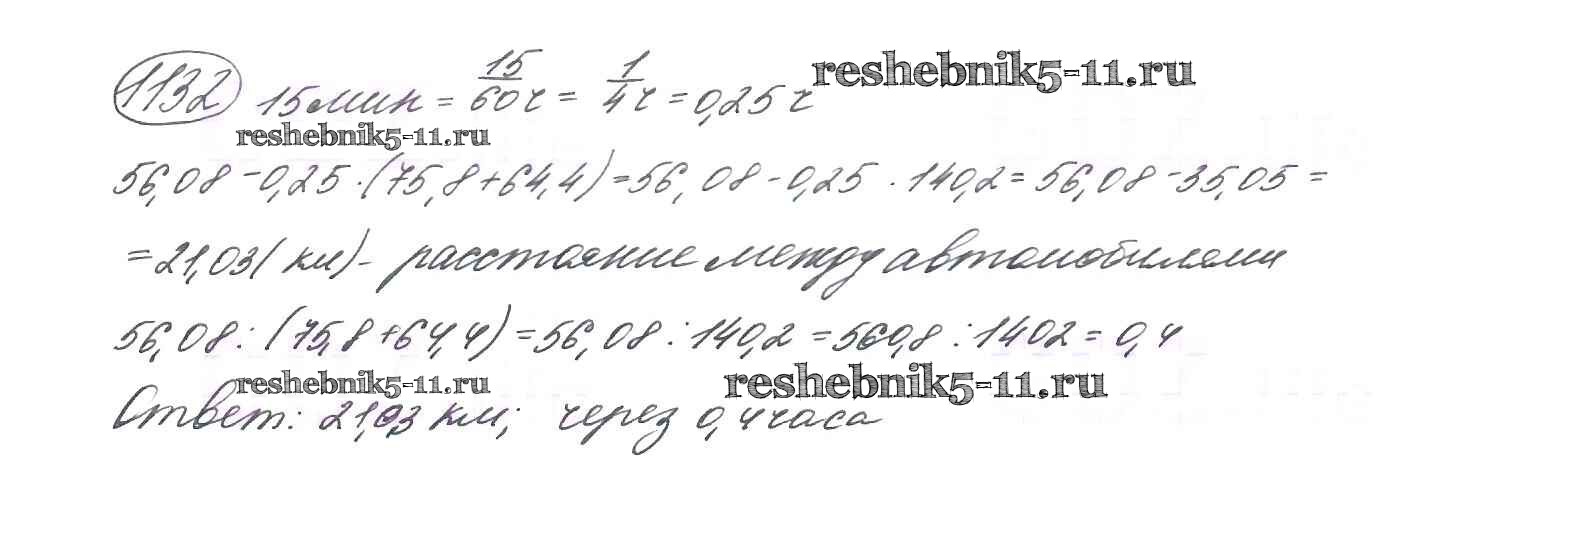 1132 15 мин = 15/60 ч = 1/4 ч = 0,25 ч reshebnik5-11.ru
reshebnik5-11.ru
56,08 - 0,25 · (75,8 + 64,4) = 56,08 - 0,25 · 140,2 = 56,08 - 35,05 =
= 21,03 (км) - расстояние между автомобилями
56,08 : (75,8 + 64,4) = 56,08 : 140,2 = 560,8 : 1402 = 0,4
reshebnik5-11.ru reshebnik5-11.ru
Ответ: 21,03 км; через 0,4 часа